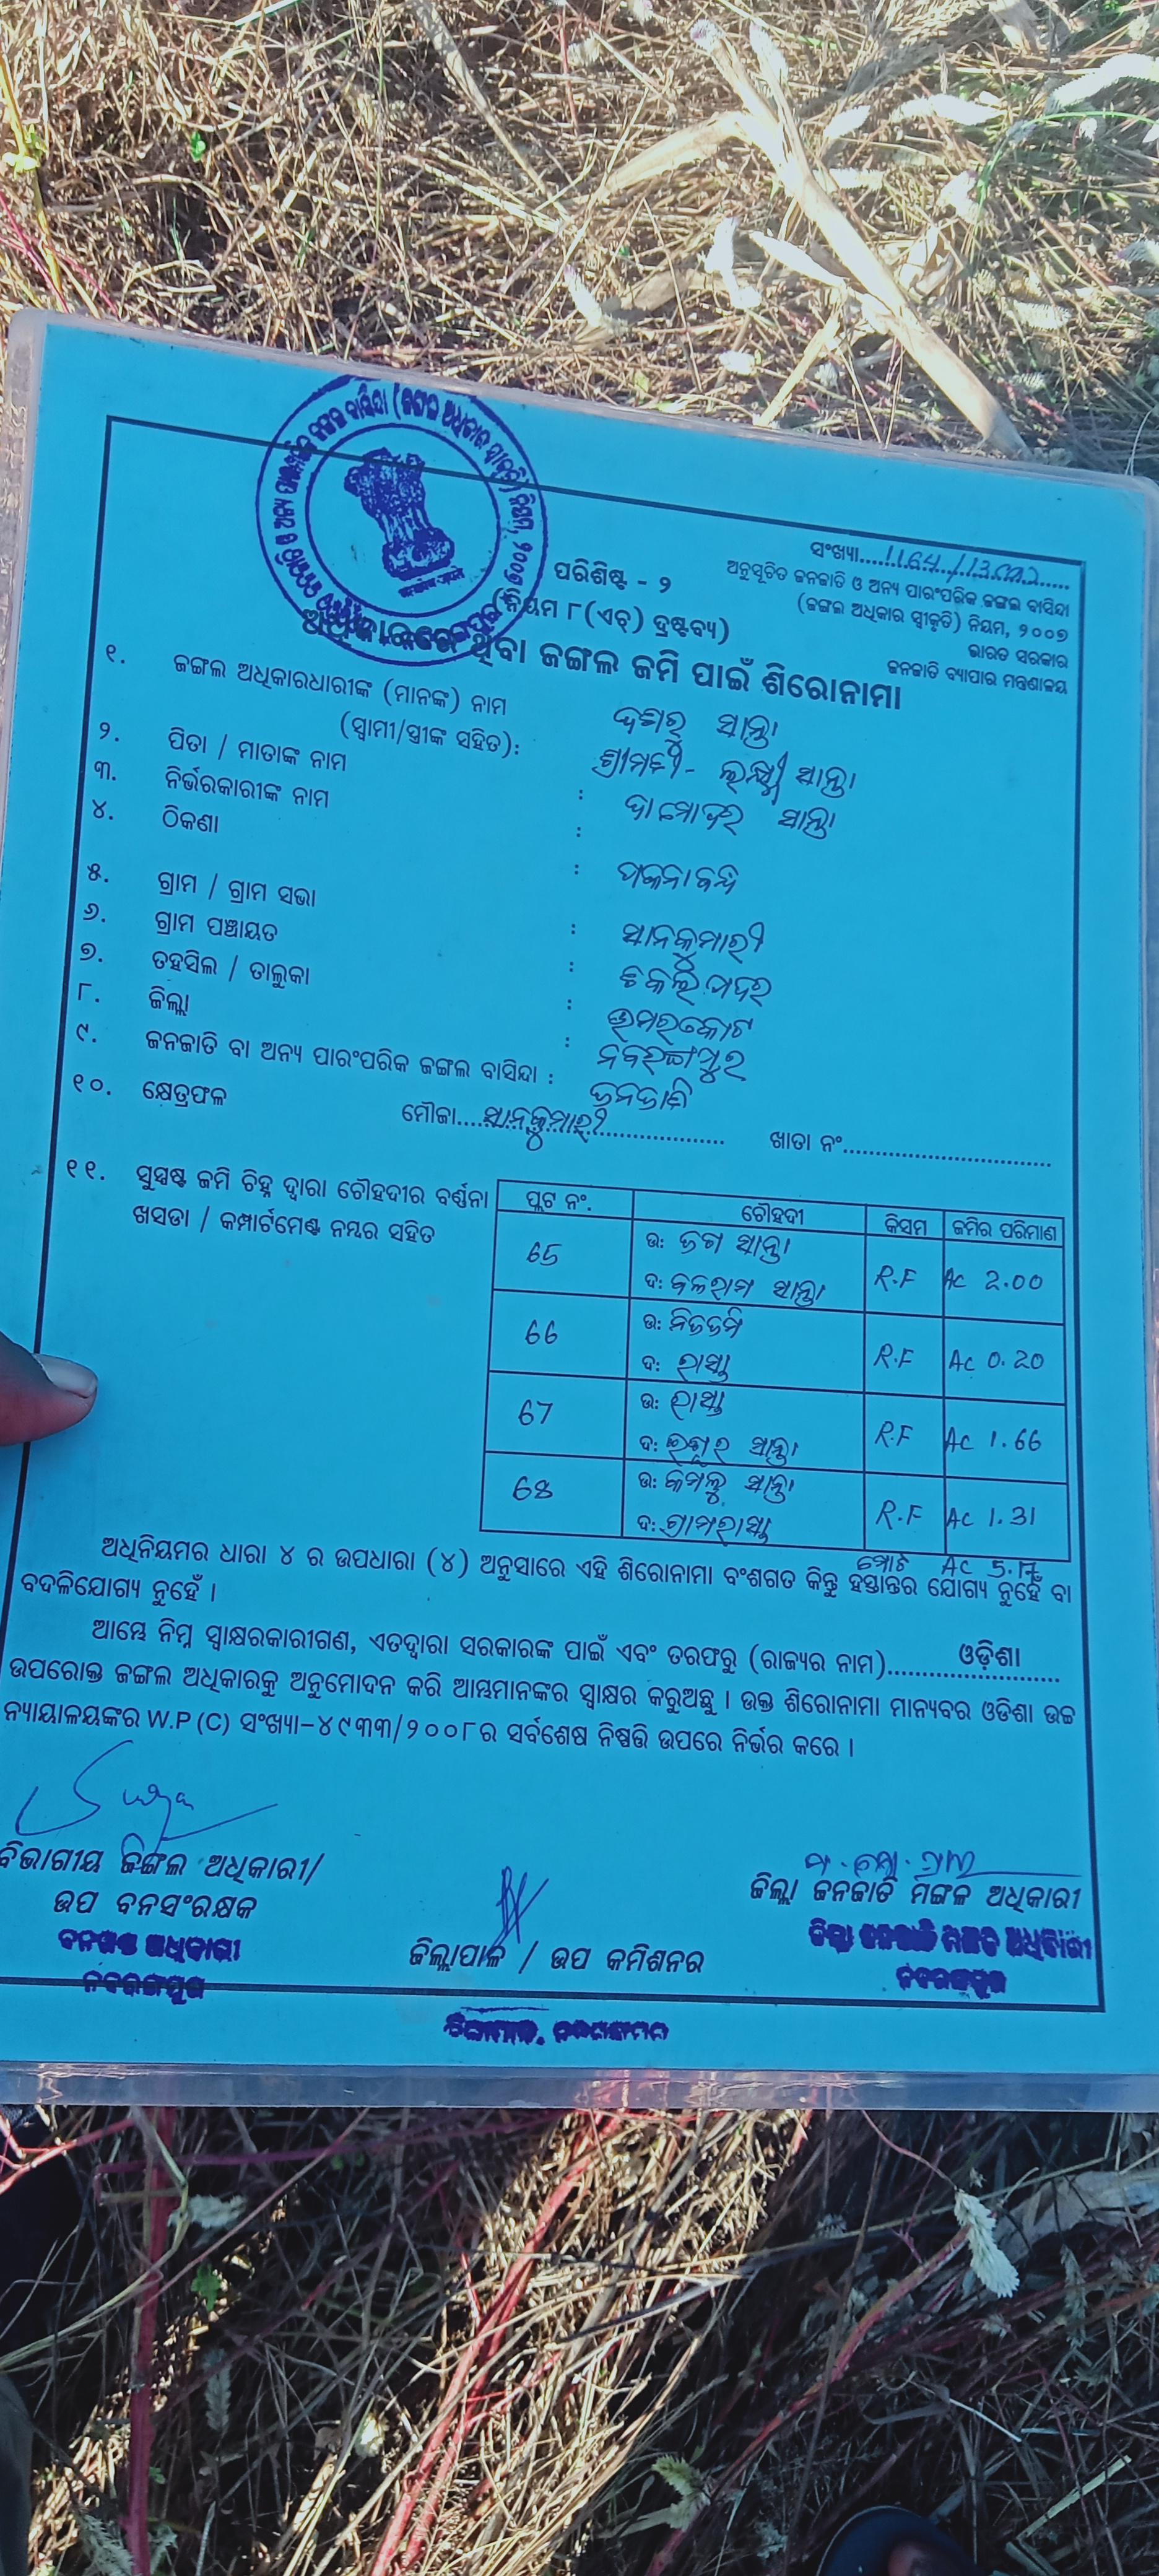 ସଂଖ୍ୟା....1164/13...
ଅନୁସୂଚିତ ଜନଜାତି ଓ ଅନ୍ୟ ପାରଂପରିକ ଜଙ୍ଗଲ ବାସିନ୍ଦା
(ଜଙ୍ଗଲ ଅଧିକାର ସ୍ୱୀକୃତି) ନିୟମ, ୨୦୦୭
ଭାରତ ସରକାର
ଜନଜାତି ବ୍ୟାପାର ମନ୍ତ୍ରଣାଳୟ
ପରିଶିଷ୍ଟ - ୨
(ନିୟମ ୮(ଏଚ୍) ଦ୍ରଷ୍ଟବ୍ୟ)
ଥିବା ଜଙ୍ଗଲ ଜମି ପାଇଁ ଶିରୋନାମା
୧. ଜଙ୍ଗଲ ଅଧିକାରଧାରୀଙ୍କ (ମାନଙ୍କ) ନାମ ସାନ୍ତା
(ସ୍ୱାମୀ/ସ୍ତ୍ରୀଙ୍କ ସହିତ): ଶ୍ରୀମତୀ- ଲକ୍ଷ୍ମୀ ସାନ୍ତା
୨. ପିତା / ମାତାଙ୍କ ନାମ : ଦାମୋଦର ସାନ୍ତା
୩. ନିର୍ଭରକାରୀଙ୍କ ନାମ :
୪. ଠିକଣା :
୫. ଗ୍ରାମ / ଗ୍ରାମ ସଭା : ସାନକୁମାରୀ
୬. ଗ୍ରାମ ପଞ୍ଚାୟତ :
୭. ତହସିଲ / ତାଲୁକା : ଉମରକୋଟ
୮. ଜିଲ୍ଲା : ନବରଙ୍ଗପୁର
୯. ଜନଜାତି ବା ଅନ୍ୟ ପାରଂପରିକ ଜଙ୍ଗଲ ବାସିନ୍ଦା : ଜନଜାତି
୧୦. କ୍ଷେତ୍ରଫଳ ମୌଜା....ସାନକୁମାରୀ.................. ଖାତା ନଂ................................
୧୧. ସୁସ୍ପଷ୍ଟ ଜମି ଚିହ୍ନ ଦ୍ୱାରା ଚୌହଦୀର ବର୍ଣ୍ଣନା
ଖସଡା / କମ୍ପାର୍ଟମେଣ୍ଟ ନମ୍ବର ସହିତ
ପ୍ଲଟ ନଂ. ଚୌହଦୀ କିସମ ଜମିର ପରିମାଣ
65 ଉ: ସାନ୍ତା R.F Ac 2.00
ଦ: ବଳରାମ ସାନ୍ତା
66 ଉ: ନିଜଜମି R.F Ac 0.20
ଦ: ରାସ୍ତା
67 ଉ: ରାସ୍ତା R.F Ac 1.66
ଦ: ଈଶ୍ୱର ସାନ୍ତା
68 ଉ: କମଳୁ ସାନ୍ତା R.F Ac 1.31
ଦ: ଗ୍ରାମରାସ୍ତା
ମୋଟ Ac 5.17
ଅଧିନିୟମର ଧାରା ୪ ର ଉପଧାରା (୪) ଅନୁସାରେ ଏହି ଶିରୋନାମା ବଂଶଗତ କିନ୍ତୁ ହସ୍ତାନ୍ତର ଯୋଗ୍ୟ ନୁହେଁ ବା
ବଦଳିଯୋଗ୍ୟ ନୁହେଁ ।
ଆମ୍ଭେ ନିମ୍ନ ସ୍ୱାକ୍ଷରକାରୀଗଣ, ଏତଦ୍ୱାରା ସରକାରଙ୍କ ପାଇଁ ଏବଂ ତରଫରୁ (ରାଜ୍ୟର ନାମ)......ଓଡ଼ିଶା......
ଉପରୋକ୍ତ ଜଙ୍ଗଲ ଅଧିକାରକୁ ଅନୁମୋଦନ କରି ଆମ୍ଭମାନଙ୍କର ସ୍ୱାକ୍ଷର କରୁଅଛୁ । ଉକ୍ତ ଶିରୋନାମା ମାନ୍ୟବର ଓଡିଶା ଉଚ୍ଚ
ନ୍ୟାୟାଳୟଙ୍କର W.P (C) ସଂଖ୍ୟା-୪୯୩୩/୨୦୦୮ର ସର୍ବଶେଷ ନିଷ୍ପତ୍ତି ଉପରେ ନିର୍ଭର କରେ ।
ବିଭାଗୀୟ ଜଙ୍ଗଲ ଅଧିକାରୀ/
ଉପ ବନସଂରକ୍ଷକ
ବନଖଣ୍ଡ ଅଧିକାରୀ
ନବରଙ୍ଗପୁର
ଜିଲ୍ଲାପାଳ / ଉପ କମିଶନର
ଜିଲ୍ଲାପାଳ, ନବରଙ୍ଗପୁର
ଜିଲ୍ଲା ଜନଜାତି ମଙ୍ଗଳ ଅଧିକାରୀ
ଜିଲ୍ଲା ଜନଜାତି ମଙ୍ଗଳ ଅଧିକାରୀ
ନବରଙ୍ଗପୁର